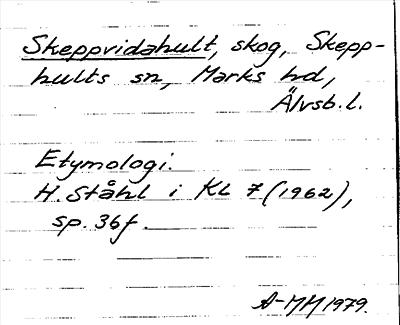 Skeppvidahult, skog, Skepp-
hults sn, Marks hd,
Älvsb. l.
Etymologi.
H. Ståhl i KL 7 (1962),
sp. 36f.
A-MM 1979.